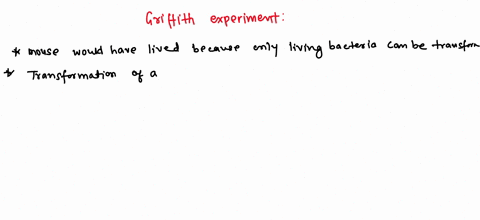 Griffith experiment:
* mouse would have lived because only living bacteria can be transform
* Transformation of a